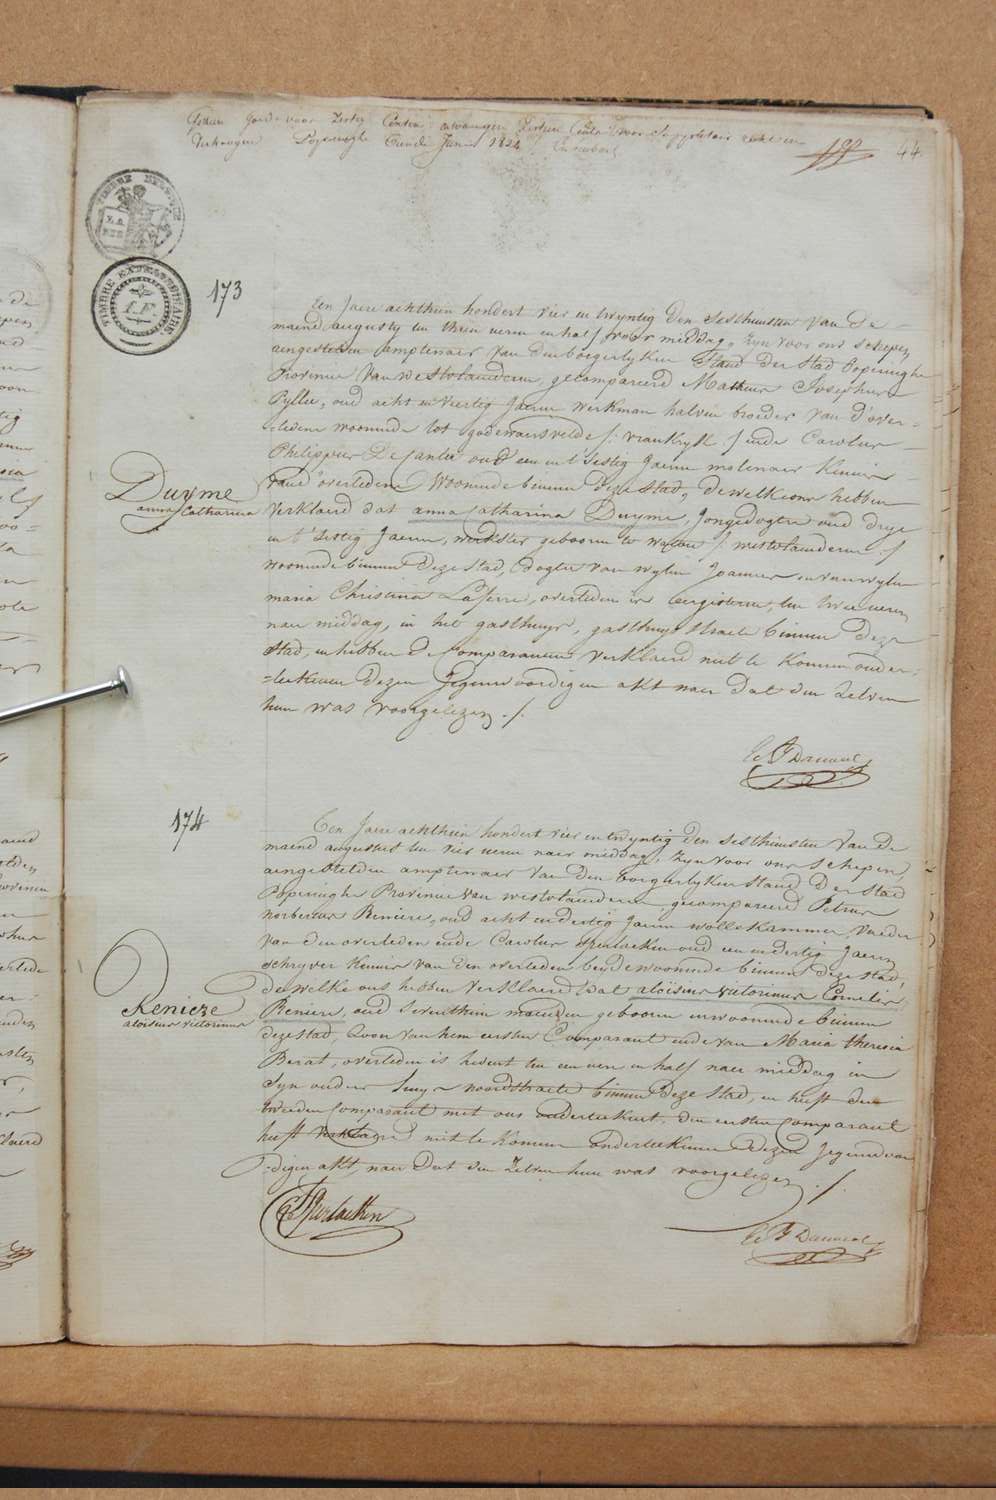 44
TIMBRE EXTRAORDINAIRE
173
Een Jaere achthien hondert vier en twyntig den sesthiensten van de
maend augusty ten thien ueren en half voor middag, zyn voor ons schepen
aengestelden amptenaer van den borgerlyken Staad der Stad Poperinghe
Provincie van westvlaenderen, gecompareerd Matheus Josephus
Pyllie, oud acht en veertig Jaeren werkman halven broeder van d'over-
-ledene woonende tot godewaersvelde /: vrankryk :/ ende Carolus
Philippus De Cantée oud een en t'sestig Jaeren molenaer kennis
van d'overledene woonende binnen deze stad, dewelke ons hebben
Duyme
anna Catharina
verklaerd dat anna Catharina Duyme, Jongedogter oud drye
en t'sestig Jaeren, werkster gebooren te watou /: westvlaenderen :/
woonende binnen deze stad, dogter van wylen Joannes en van wylen
maria Christina Laferre, overleden is eergisteren, ten twee ueren
naer middag, in het gasthuys, gasthuys straete binnen deze
stad, en hebben de Comparanten verklaerd niet te konnen onder-
-teekenen dezen Jegenwoordigen akt naer dat den zelven
hun was voorgelezen ./.
174
Een Jaere achthien hondert vier en twyntig den sesthiensten van de
maend augustus ten vier ueren naer middag, zyn voor ons schepen,
aengestelden amptenaer van den borgerlyken staad der stad
Poperinghe Provincie van westvlaenderen, gecompareerd Petrus
Norbertus Reniere, oud acht en dertig Jaeren wollekammer, vaeder
van den overleden ende Carolus Sperlaeken oud een en dertig Jaeren
schryver kennis van den overleden beyde woonende binnen deze stad,
Reniere
aloisius victorinus
dewelke ons hebben verklaerd dat aloisius victorinus Cornelis
Reniere, oud seventhien maenden gebooren en woonende binnen
deze stad, zoon van hem eersten Comparant ende van Maria theresia
Berat, overleden is heden ten een ure en half naer middag in
syn ouders huys noordstraete binnen deze stad, en heeft den
tweeden comparant met ons onderteekent, den eersten comparant
heeft verklaerd niet te konnen onderteekenen dezen Jegenwoor-
-digen akt, naer dat den zelven hun was voorgelezen ./.
C Sperlaeken